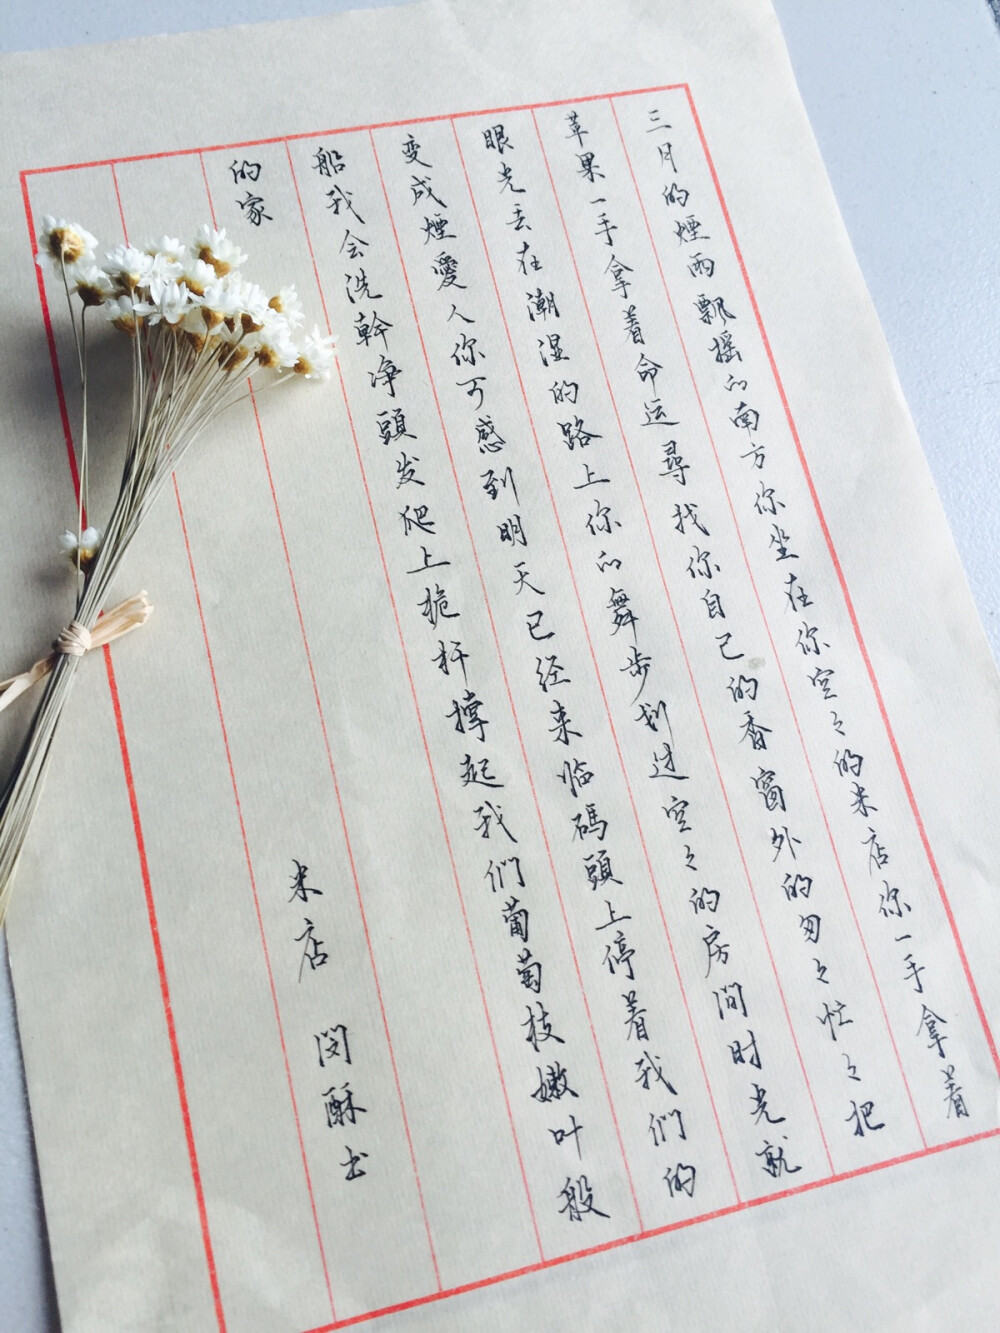 三月的煙雨飄摇的南方你坐在你空々的米店你一手拿着
苹果一手拿着命运尋找你自己的香窗外的匆々忙々把
眼光丢在潮湿的路上你的舞步划过空々的房间时光就
变成煙愛人你可感到明天已经来临碼頭上停着我们的
船我会洗幹净頭发爬上桅杆撑起我们葡萄枝嫩叶般
的家
米店 闵酥书